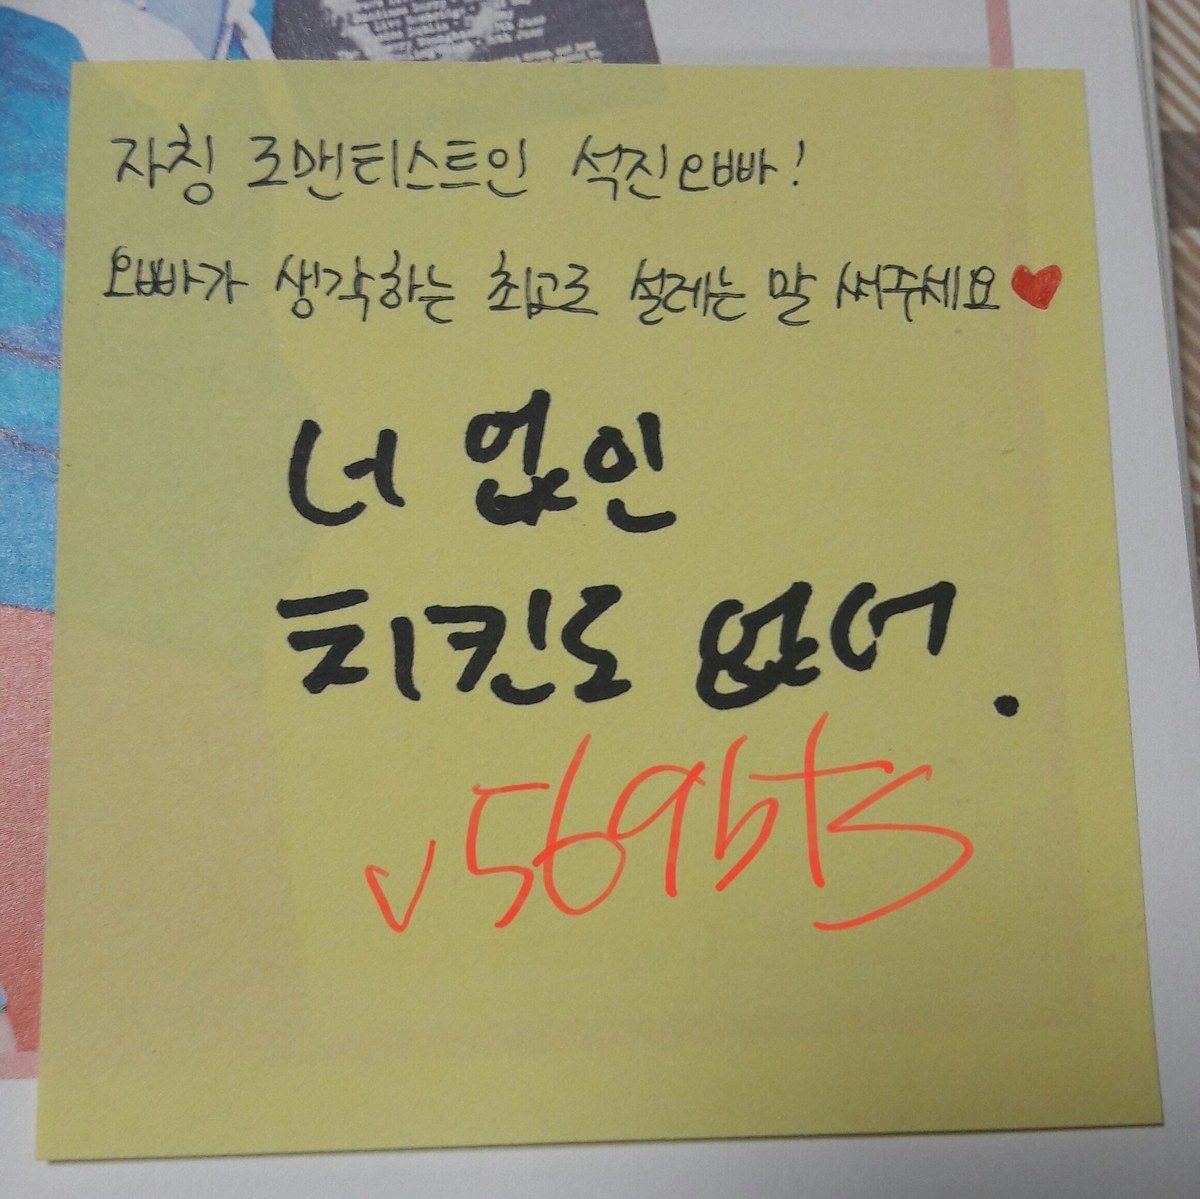 자칭 로맨티스트인 석진오빠!
오빠가 생각하는 최고로 설레는 말 써주세요♥
너 없인
치킨도 없어.
v569bts